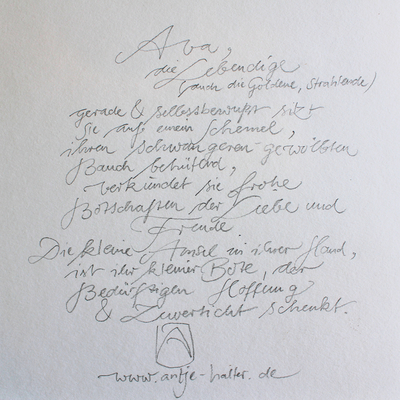 Ava,
die Lebendige
(auch die Goldene, Strahlende)
gerade & selbstbewußt sitzt
sie auf einem Schemel,
ihren schwangeren gewölbten
Bauch behütend,
verkündet sie frohe
Botschaften der Liebe und
Freude.
Die kleine Amsel in ihrer Hand,
ist ihr kleiner Bote, der
Bedürftigen Hoffnung
& Zuversicht schenkt.
www.antje-halter.de